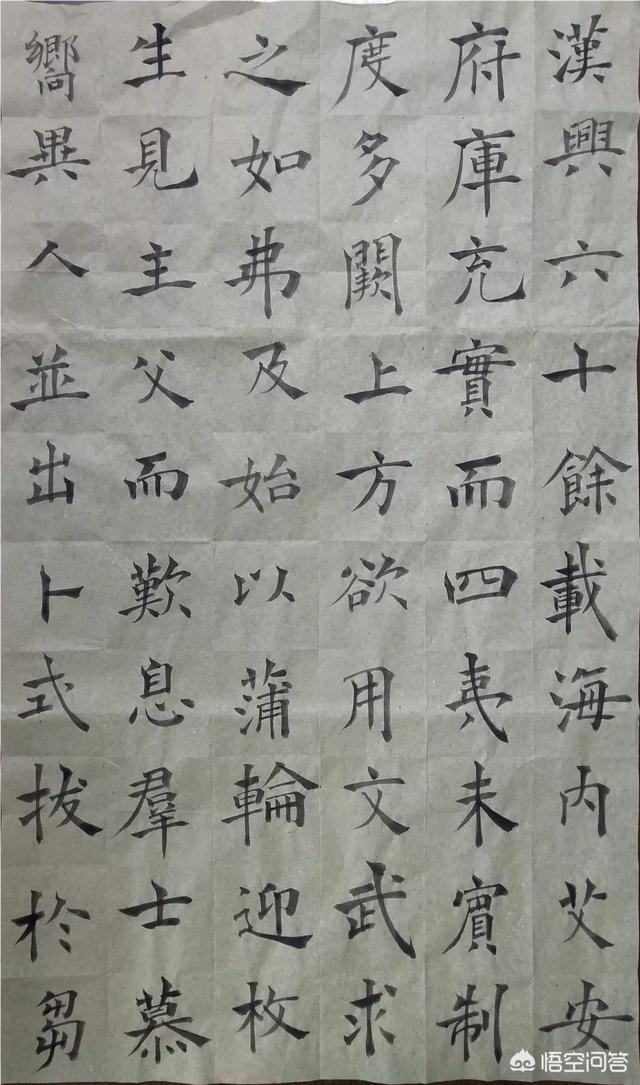 漢興六十餘載海内艾安
府庫充實而四夷未賓制
度多闕上方欲用文武求
之如弗及始以蒲輪迎枚
生見主父而歎息羣士慕
嚮異人並出卜式拔於芻
悟空问答